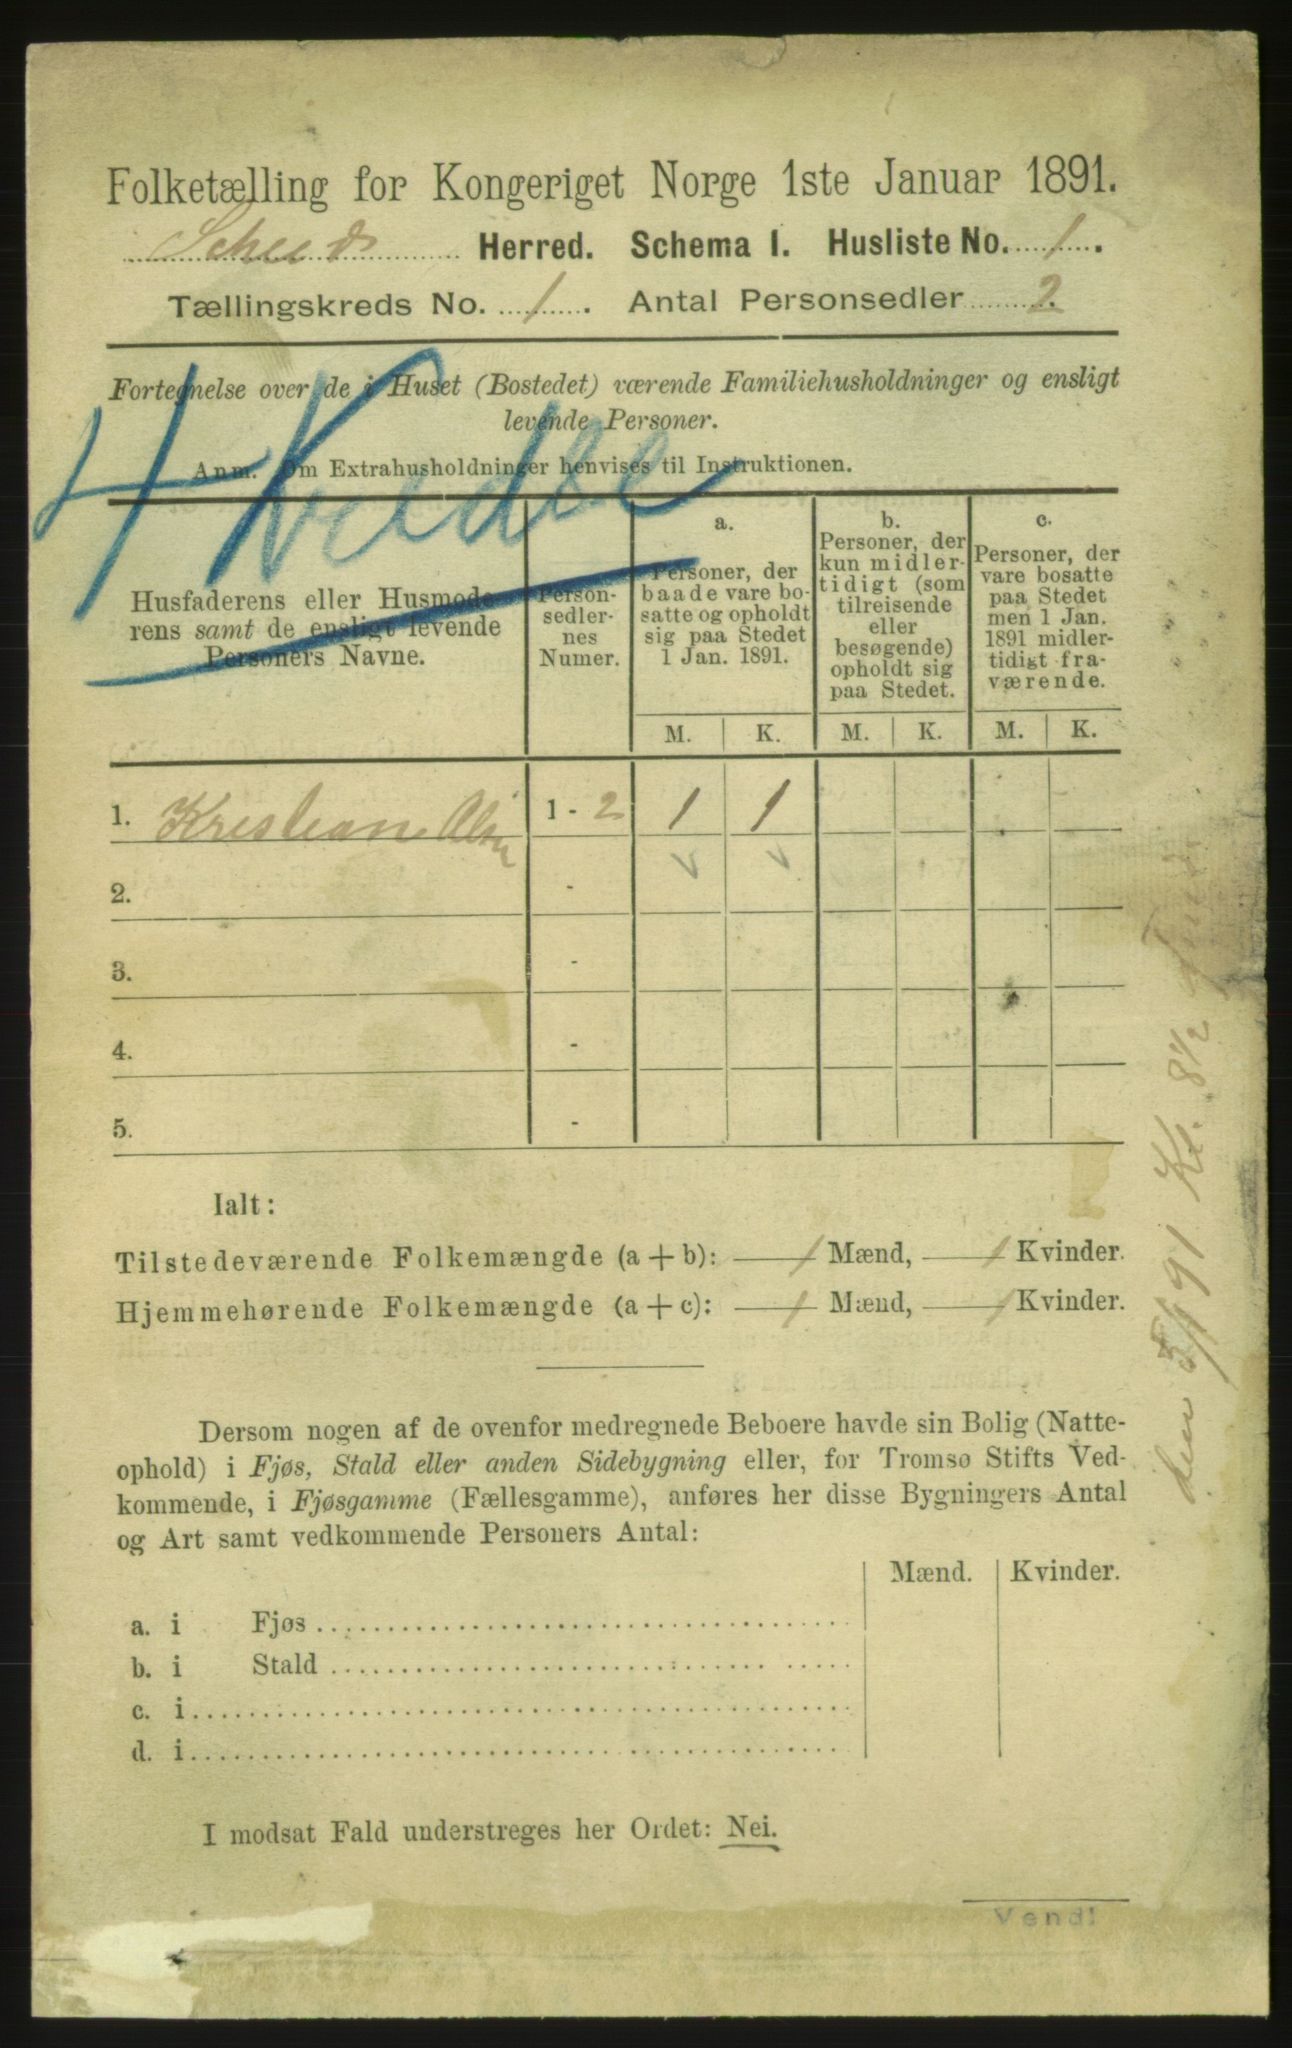 Folketælling for Kongeriget Norge 1ste Januar 1891.
Scheed Herred. Schema I. Husliste No. 1.
Tællingskreds No. 1. Antal Personsedler 2.
Fortegnelse over de i Huset (Bostedet) værende Familiehusholdninger og ensligt
levende Personer.
Anm. Om Extrahusholdninger henvises til Instruktionen.
Husfaderens eller Husmode-
rens samt de ensligt levende
Personers Navne.
Person-
sedler-
nes
Numer.
a.
Personer, der
baade vare bo-
satte og opholdt
sig paa Stedet
1 Jan. 1891.
b.
Personer, der
kun midler-
tidigt (som
tilreisende
eller
besøgende)
opholdt sig
paa Stedet.
c.
Personer, der
vare bosatte
paa Stedet
men 1 Jan.
1891 midler-
tidigt fra-
værende.
M. K. M. K. M. K.
1. Kristian Olsen 1 - 2 1 1
2. -
3. -
4. -
5. -
Ialt:
Tilstedeværende Folkemængde (a + b): 1 Mænd, 1 Kvinder.
Hjemmehørende Folkemængde (a + c): 1 Mænd, 1 Kvinder.
Dersom nogen af de ovenfor medregnede Beboere havde sin Bolig (Natte-
ophold) i Fjøs, Stald eller anden Sidebygning eller, for Tromsø Stifts Ved-
kommende, i Fjøsgamme (Fællesgamme), anføres her disse Bygningers Antal
og Art samt vedkommende Personers Antal:
Mænd. Kvinder.
a. i Fjøs
b. i Stald
c. i
d. i
I modsat Fald understreges her Ordet: Nei.
Vend!
den 5/1 91 Kl. 8½